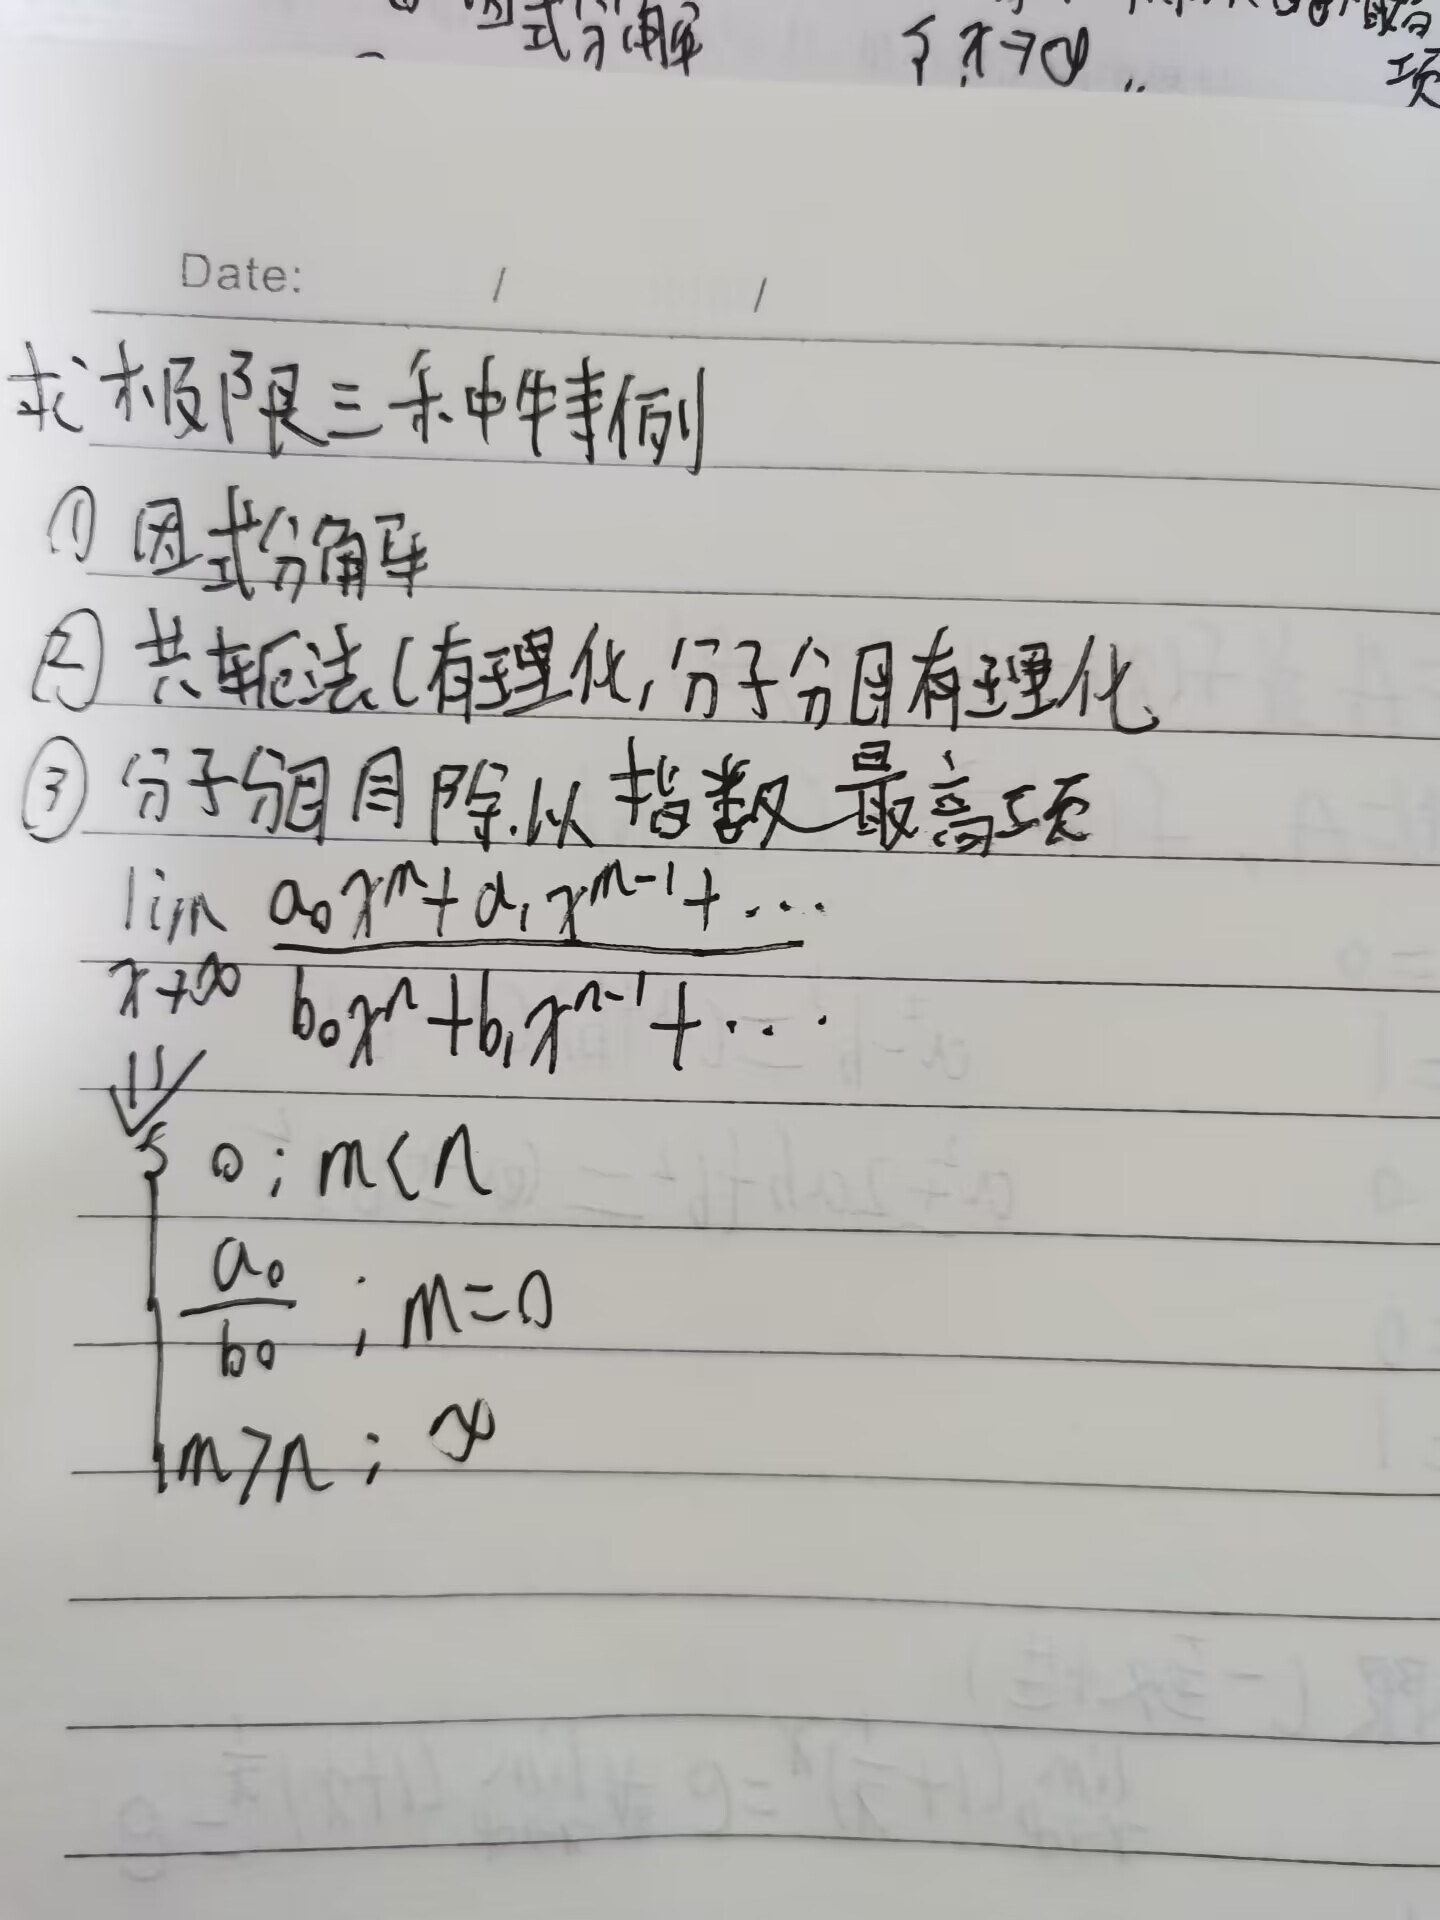 因式分解
x→∞
项
Date: / /
求极限三种特例
① 因式分解
② 共轭法(有理化,分子分母有理化
③ 分子分母同除以指数最高项
lim x→∞ (a₀xᵐ+a₁xᵐ⁻¹+...)/(b₀xⁿ+b₁xⁿ⁻¹+...)
⇓
{ 0; m<n
a₀/b₀; m=0
m>n; ∞